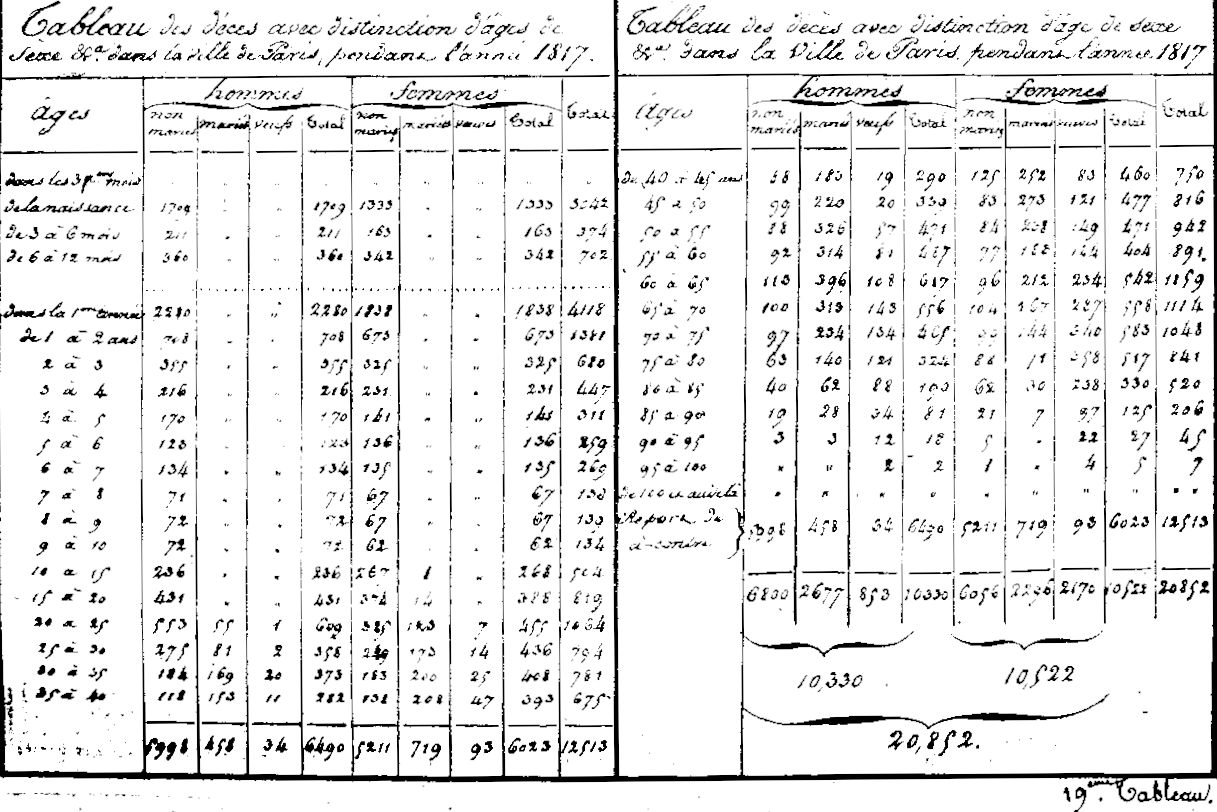 Tableau des décès avec distinction d'âges de
sexe &ca. dans la ville de Paris, pendant l'année 1817.
âges hommes femmes Total
non mariés mariés veufs Total non mariés mariées veuves Total
dans les 3 pers mois
de la naissance 1709 " " 1709 1333 " " 1333 3042
de 3 à 6 mois 211 " " 211 163 " " 163 374
de 6 à 12 mois 360 " " 360 342 " " 342 702
dans la 1ère année 2280 " " 2280 1838 " " 1838 4118
de 1 à 2 ans 708 " " 708 673 " " 673 1381
2 à 3 355 " " 355 325 " " 325 680
3 à 4 216 " " 216 231 " " 231 447
4 à 5 170 " " 170 141 " " 141 311
5 à 6 123 " " 123 136 " " 136 259
6 à 7 134 " " 134 135 " " 135 269
7 à 8 71 " " 71 67 " " 67 138
8 à 9 72 " " 72 67 " " 67 139
9 à 10 72 " " 72 62 " " 62 134
10 à 15 236 " " 236 267 1 " 268 504
15 à 20 431 " " 431 374 14 " 388 819
20 à 25 553 55 1 609 325 123 7 455 1064
25 à 30 275 81 2 358 249 173 14 436 794
30 à 35 184 169 20 373 183 200 25 408 781
35 à 40 118 153 11 282 138 208 47 393 675
5998 458 34 6490 5211 719 93 6023 12513
Tableau des décès avec distinction d'âge de sexe
&ca. dans la Ville de Paris pendant l'année 1817
âges hommes femmes Total
non mariés mariés veufs Total non mariées mariées veuves Total
de 40 à 45 ans 88 183 19 290 125 252 83 460 750
45 à 50 99 220 20 339 83 273 121 477 816
50 à 55 88 326 57 471 84 238 149 471 942
55 à 60 92 314 81 487 77 163 164 404 891
60 à 65 113 396 108 617 96 212 234 542 1159
65 à 70 100 313 143 556 104 167 287 558 1114
70 à 75 97 234 134 465 99 144 340 583 1048
75 à 80 63 140 121 324 88 71 358 517 841
80 à 85 40 62 88 190 62 30 238 330 520
85 à 90 19 28 34 81 21 7 97 125 206
90 à 95 3 3 12 18 5 " 22 27 45
95 à 100 " " 2 2 1 " 4 5 7
de 100 et " " " " " " " " "
Report de
ci-contre 5998 458 34 6490 5211 719 93 6023 12513
6800 2677 853 10330 6056 2296 2170 10522 20852
10,330 10,522
20,852.
19ème. Tableau.